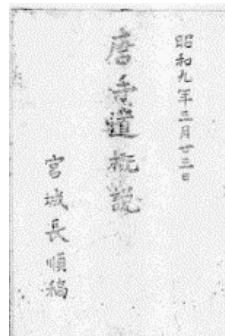 昭和九年三月廿三日
唐手道概説
宮城長順稿